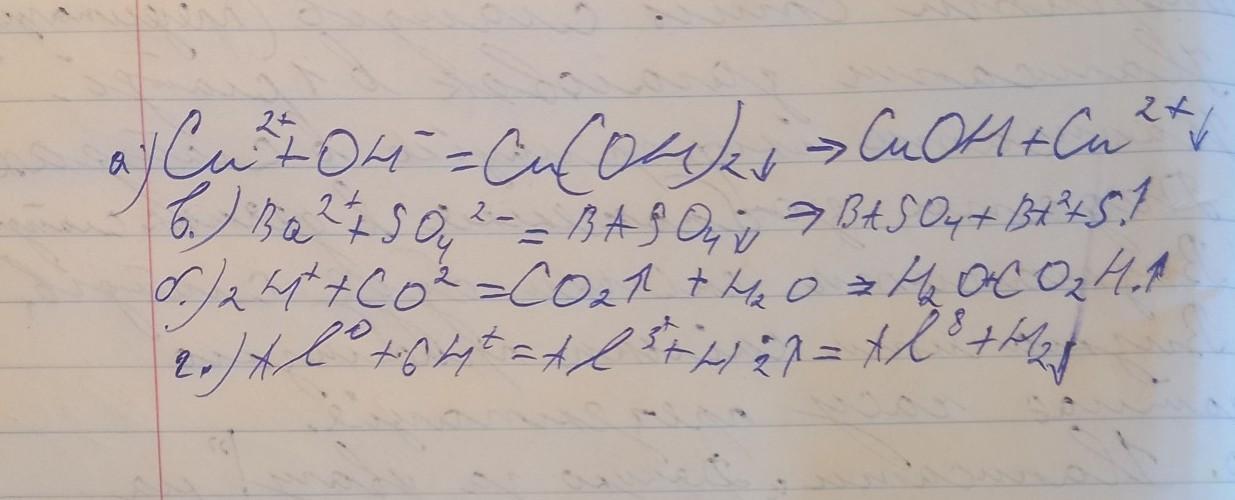 а) Cu²⁺ + OH⁻ = Cu(OH)₂↓ ⇒ CuOH + Cu²⁺↓
в.) Ba²⁺ + SO₄²⁻ = BASO₄↓ ⇒ BASO₄ + BA² + S.↑
б.) 2H⁺ + CO² = CO₂↑ + H₂O ⇒ H₂O + CO₂H.↑
г.) Al⁰ + 6H⁺ = Al³⁺ + H₂↑ = Al⁸ + H₂↓